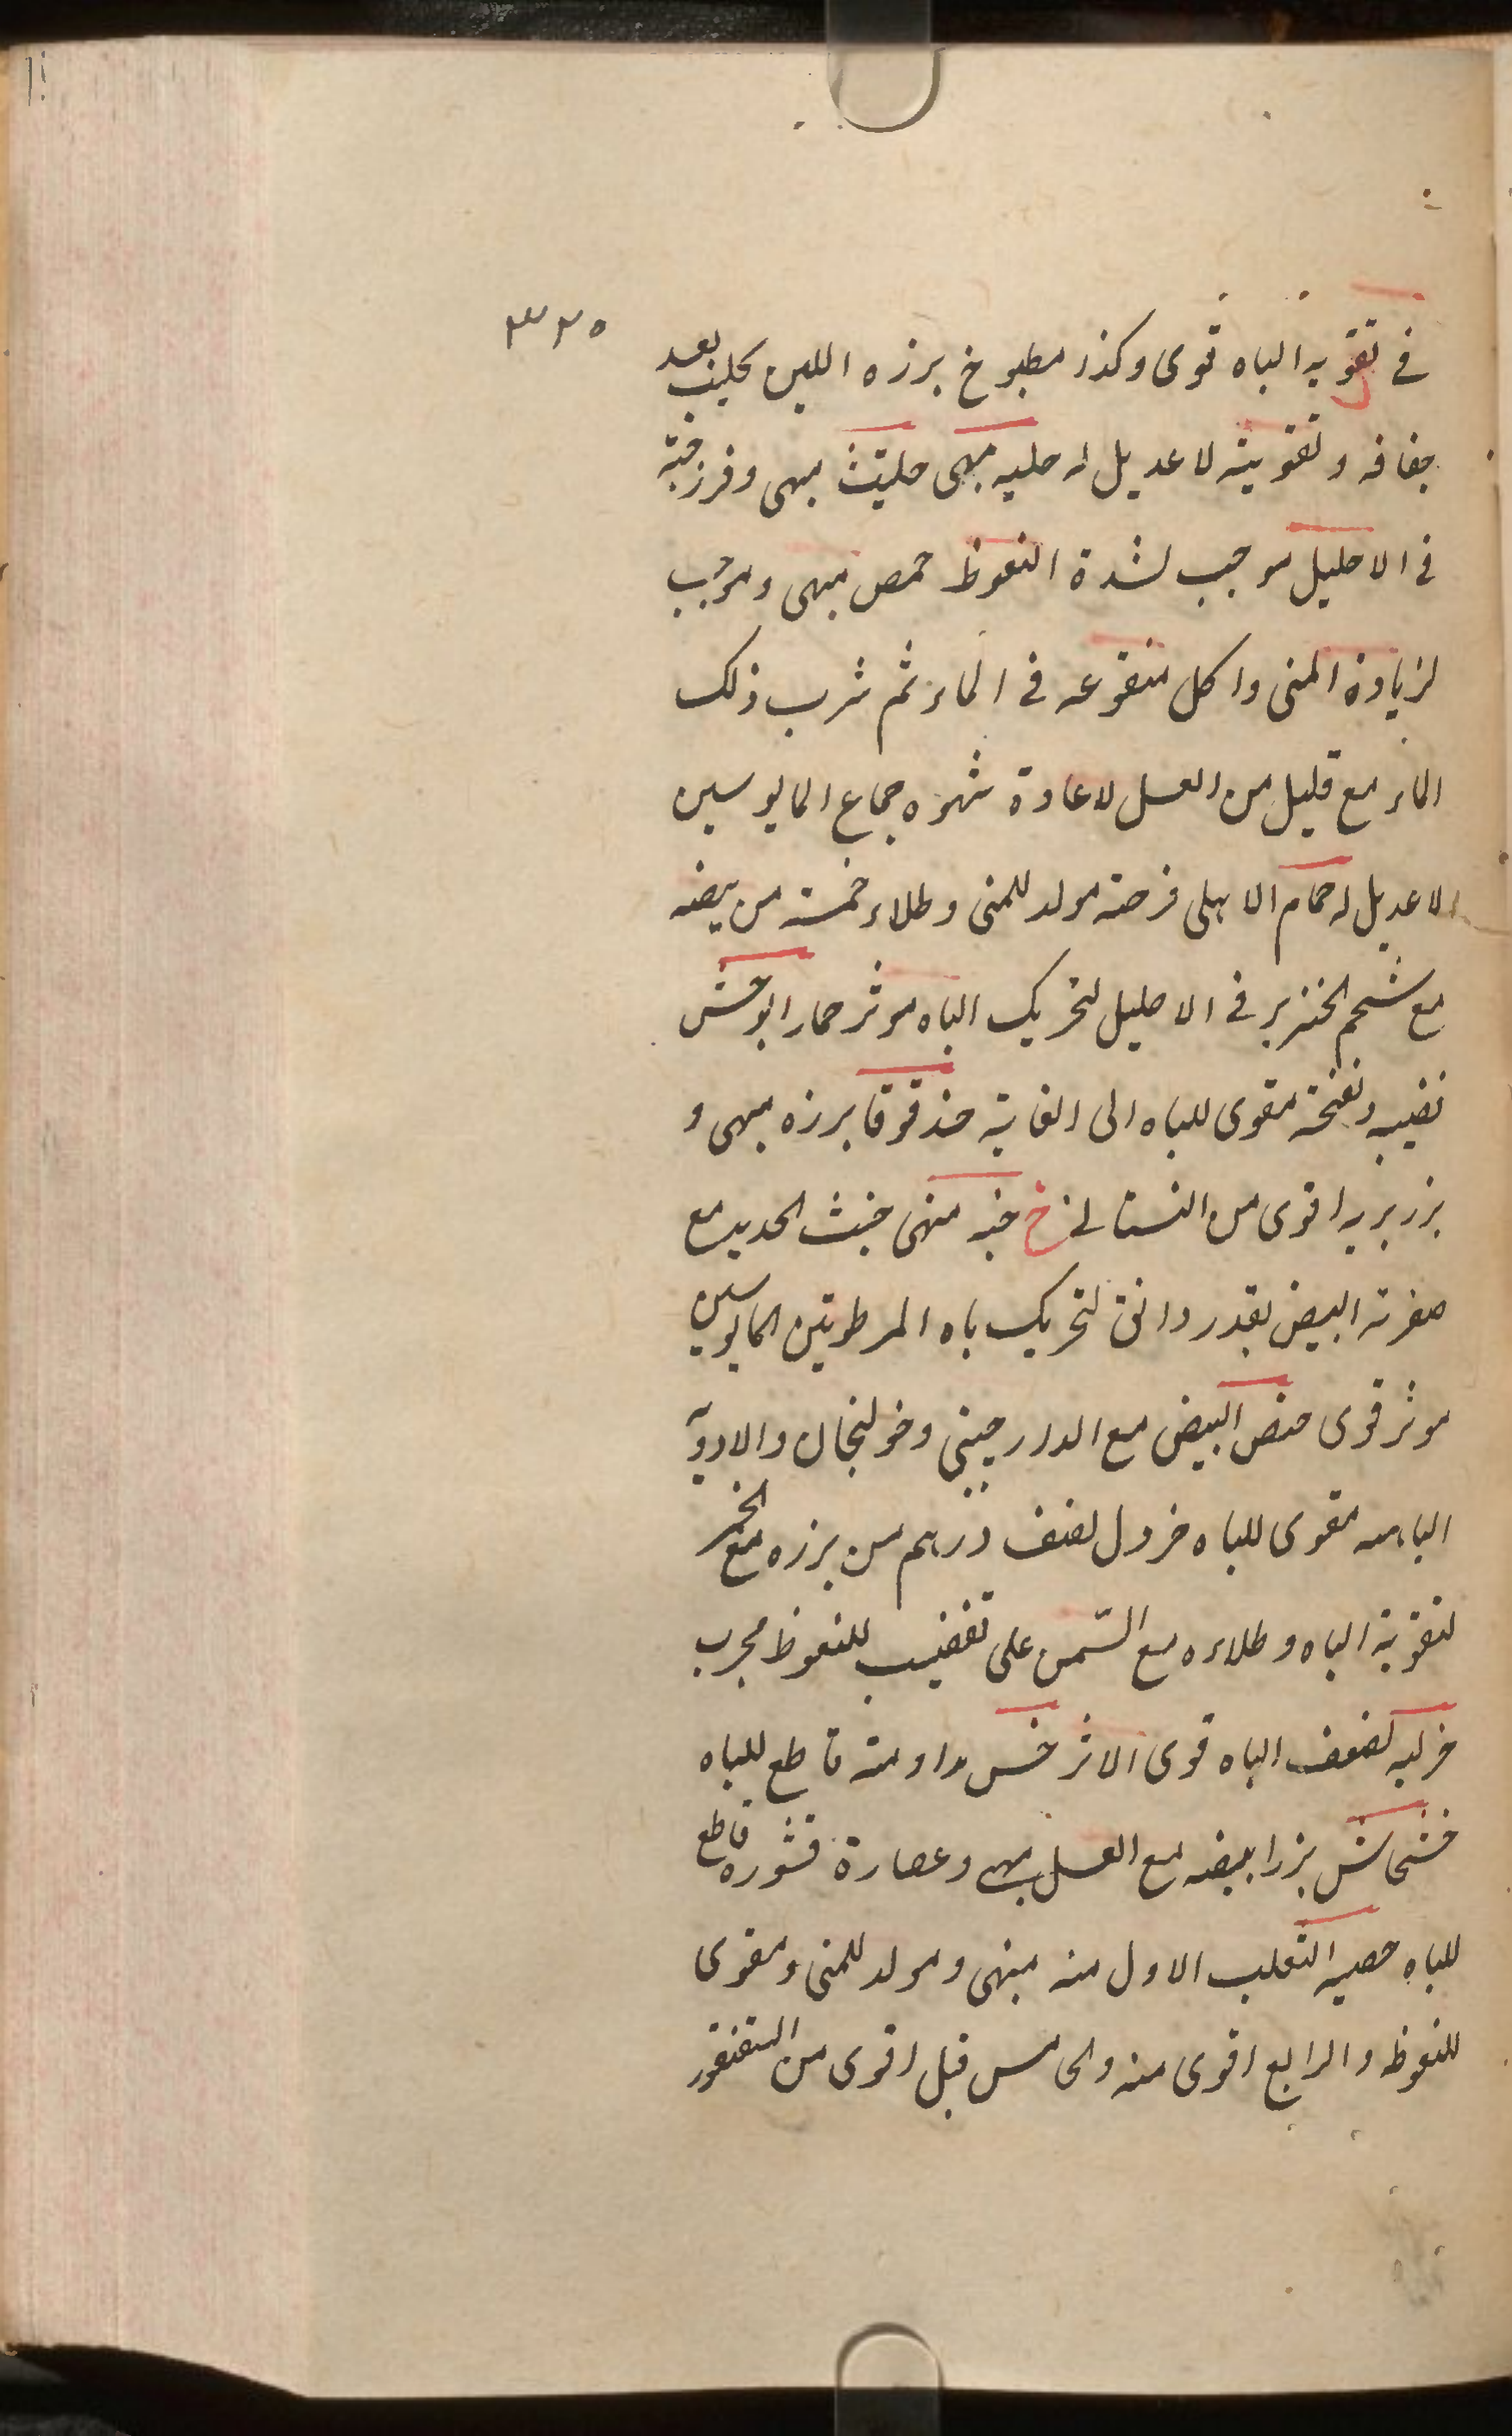 ٣٢٥
في تقويه الباه قوى وكذر مطبوخ برزه اللبن كليب بعد
جفافه وتقويته لا عديل له حلبه مبهى حلتيث مبهى وفرزجته
في الاحليل موجب لشدة النعوظ حمص مبهى وموجب
لزيادة المنى واكل منقوعه في الماء ثم شرب ذلك
الماء مع قليل من العسل لاعادة شهوه جماع المايوسين
لا عديل له حمام الاهلى فرخه مولد للمنى وطلاء خمسة من بيضه
مع شحم الخنزير في الاحليل لتحريك الباه موثر حمار الوحش
نضيبه ونفخته مقوى للباه الى الغاية حندقوقا برزه مبهى و
بزر بريه اقوى من البستانى خ خبه منهى خبث الحديد مع
صفرته البيض بقدر دانق لتحريك باه المرطوبين المايوسين
موثر قوى حنص البيض مع الدارچينى وخولنجان والادوية
الباهيه مقوى للباه خردل نصف درهم من برزه مع الخمر
لتقوية الباه وطلاءه مع السمن على تقضيب للنعوظ مجرب
خرليه لضعف الباه قوى الاثر خس مداومته قاطع للباه
خشخاش بزر ابيضه مع العسل مبهى وعصارة قشوره قاطع
للباه خصيه الثعلب الاول منه مبهى ومولد للمنى ومقوى
للنعوظ والرابع اقوى منه والخامس قبل اقوى من السقنقور